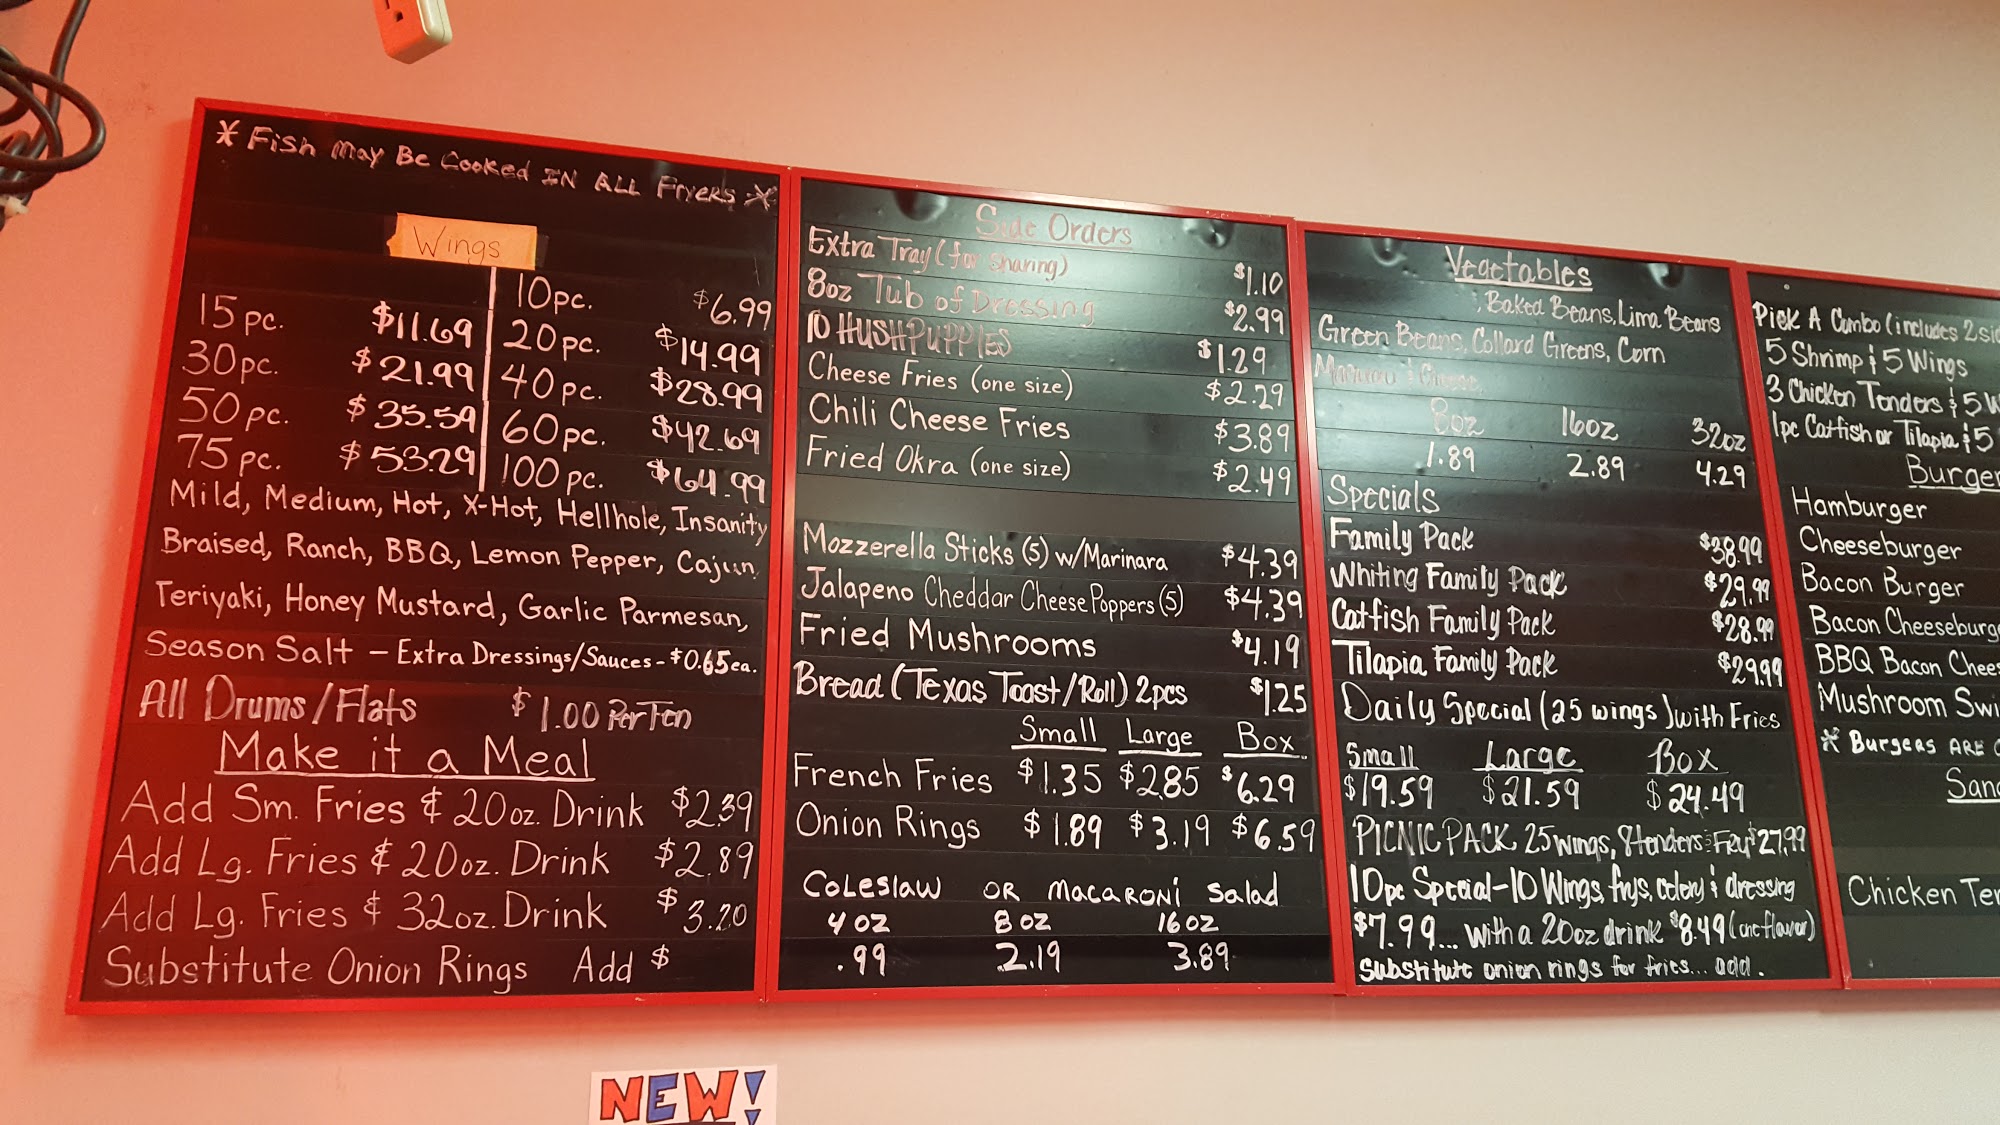 * Fish May Be Cooked IN ALL Fryers *
Wings
10pc. $6.99
15pc. $11.69
20pc. $14.99
30pc. $21.99
40pc. $28.99
50pc. $35.59
60pc. $42.69
75pc. $53.29
100pc. $64.99
Mild, Medium, Hot, X-Hot, Hellhole, Insanity
Braised, Ranch, BBQ, Lemon Pepper, Cajun,
Teriyaki, Honey Mustard, Garlic Parmesan,
Season Salt - Extra Dressings/Sauces - $0.65ea.
All Drums/Flats $1.00 Per Ten
Make it a Meal
Add Sm. Fries & 20oz. Drink $2.39
Add Lg. Fries & 20oz. Drink $2.89
Add Lg. Fries & 32oz. Drink $3.20
Substitute Onion Rings Add $
Side Orders
Extra Tray (for sharing) $1.10
8oz Tub of Dressing $2.99
10 HUSHPUPPIES $1.29
Cheese Fries (one size) $2.29
Chili Cheese Fries $3.89
Fried Okra (one size) $2.49
Mozzerella Sticks (5) w/Marinara $4.39
Jalapeno Cheddar Cheese Poppers (5) $4.39
Fried Mushrooms $4.19
Bread (Texas Toast/Roll) 2pcs $1.25
Small Large Box
French Fries $1.35 $2.85 $6.29
Onion Rings $1.89 $3.19 $6.59
Coleslaw OR Macaroni Salad
4oz 8oz 16oz
.99 2.19 3.89
Vegetables
, Baked Beans, Lima Beans
Green Beans, Collard Greens, Corn
Macaroni & Cheese
8oz 16oz 32oz
1.89 2.89 4.29
Specials
Family Pack $38.99
Whiting Family Pack $29.99
Catfish Family Pack $28.99
Tilapia Family Pack $29.99
Daily Special (25 wings) with Fries
Small Large Box
$19.59 $21.59 $24.49
PICNIC PACK 25 wings, 8 tenders Fry $27.99
10pc Special - 10 Wings, frys, celery & dressing
$7.99... with a 20oz drink $8.49 (one flavor)
Substitute onion rings for fries... add.
Pick A Combo (includes 2 sid
5 Shrimp & 5 Wings
3 Chicken Tenders & 5 W
1pc Catfish or Tilapia & 5
Burger
Hamburger
Cheeseburger
Bacon Burger
Bacon Cheeseburge
BBQ Bacon Chees
Mushroom Swi
* Burgers are
Sand
Chicken Ten
NEW!